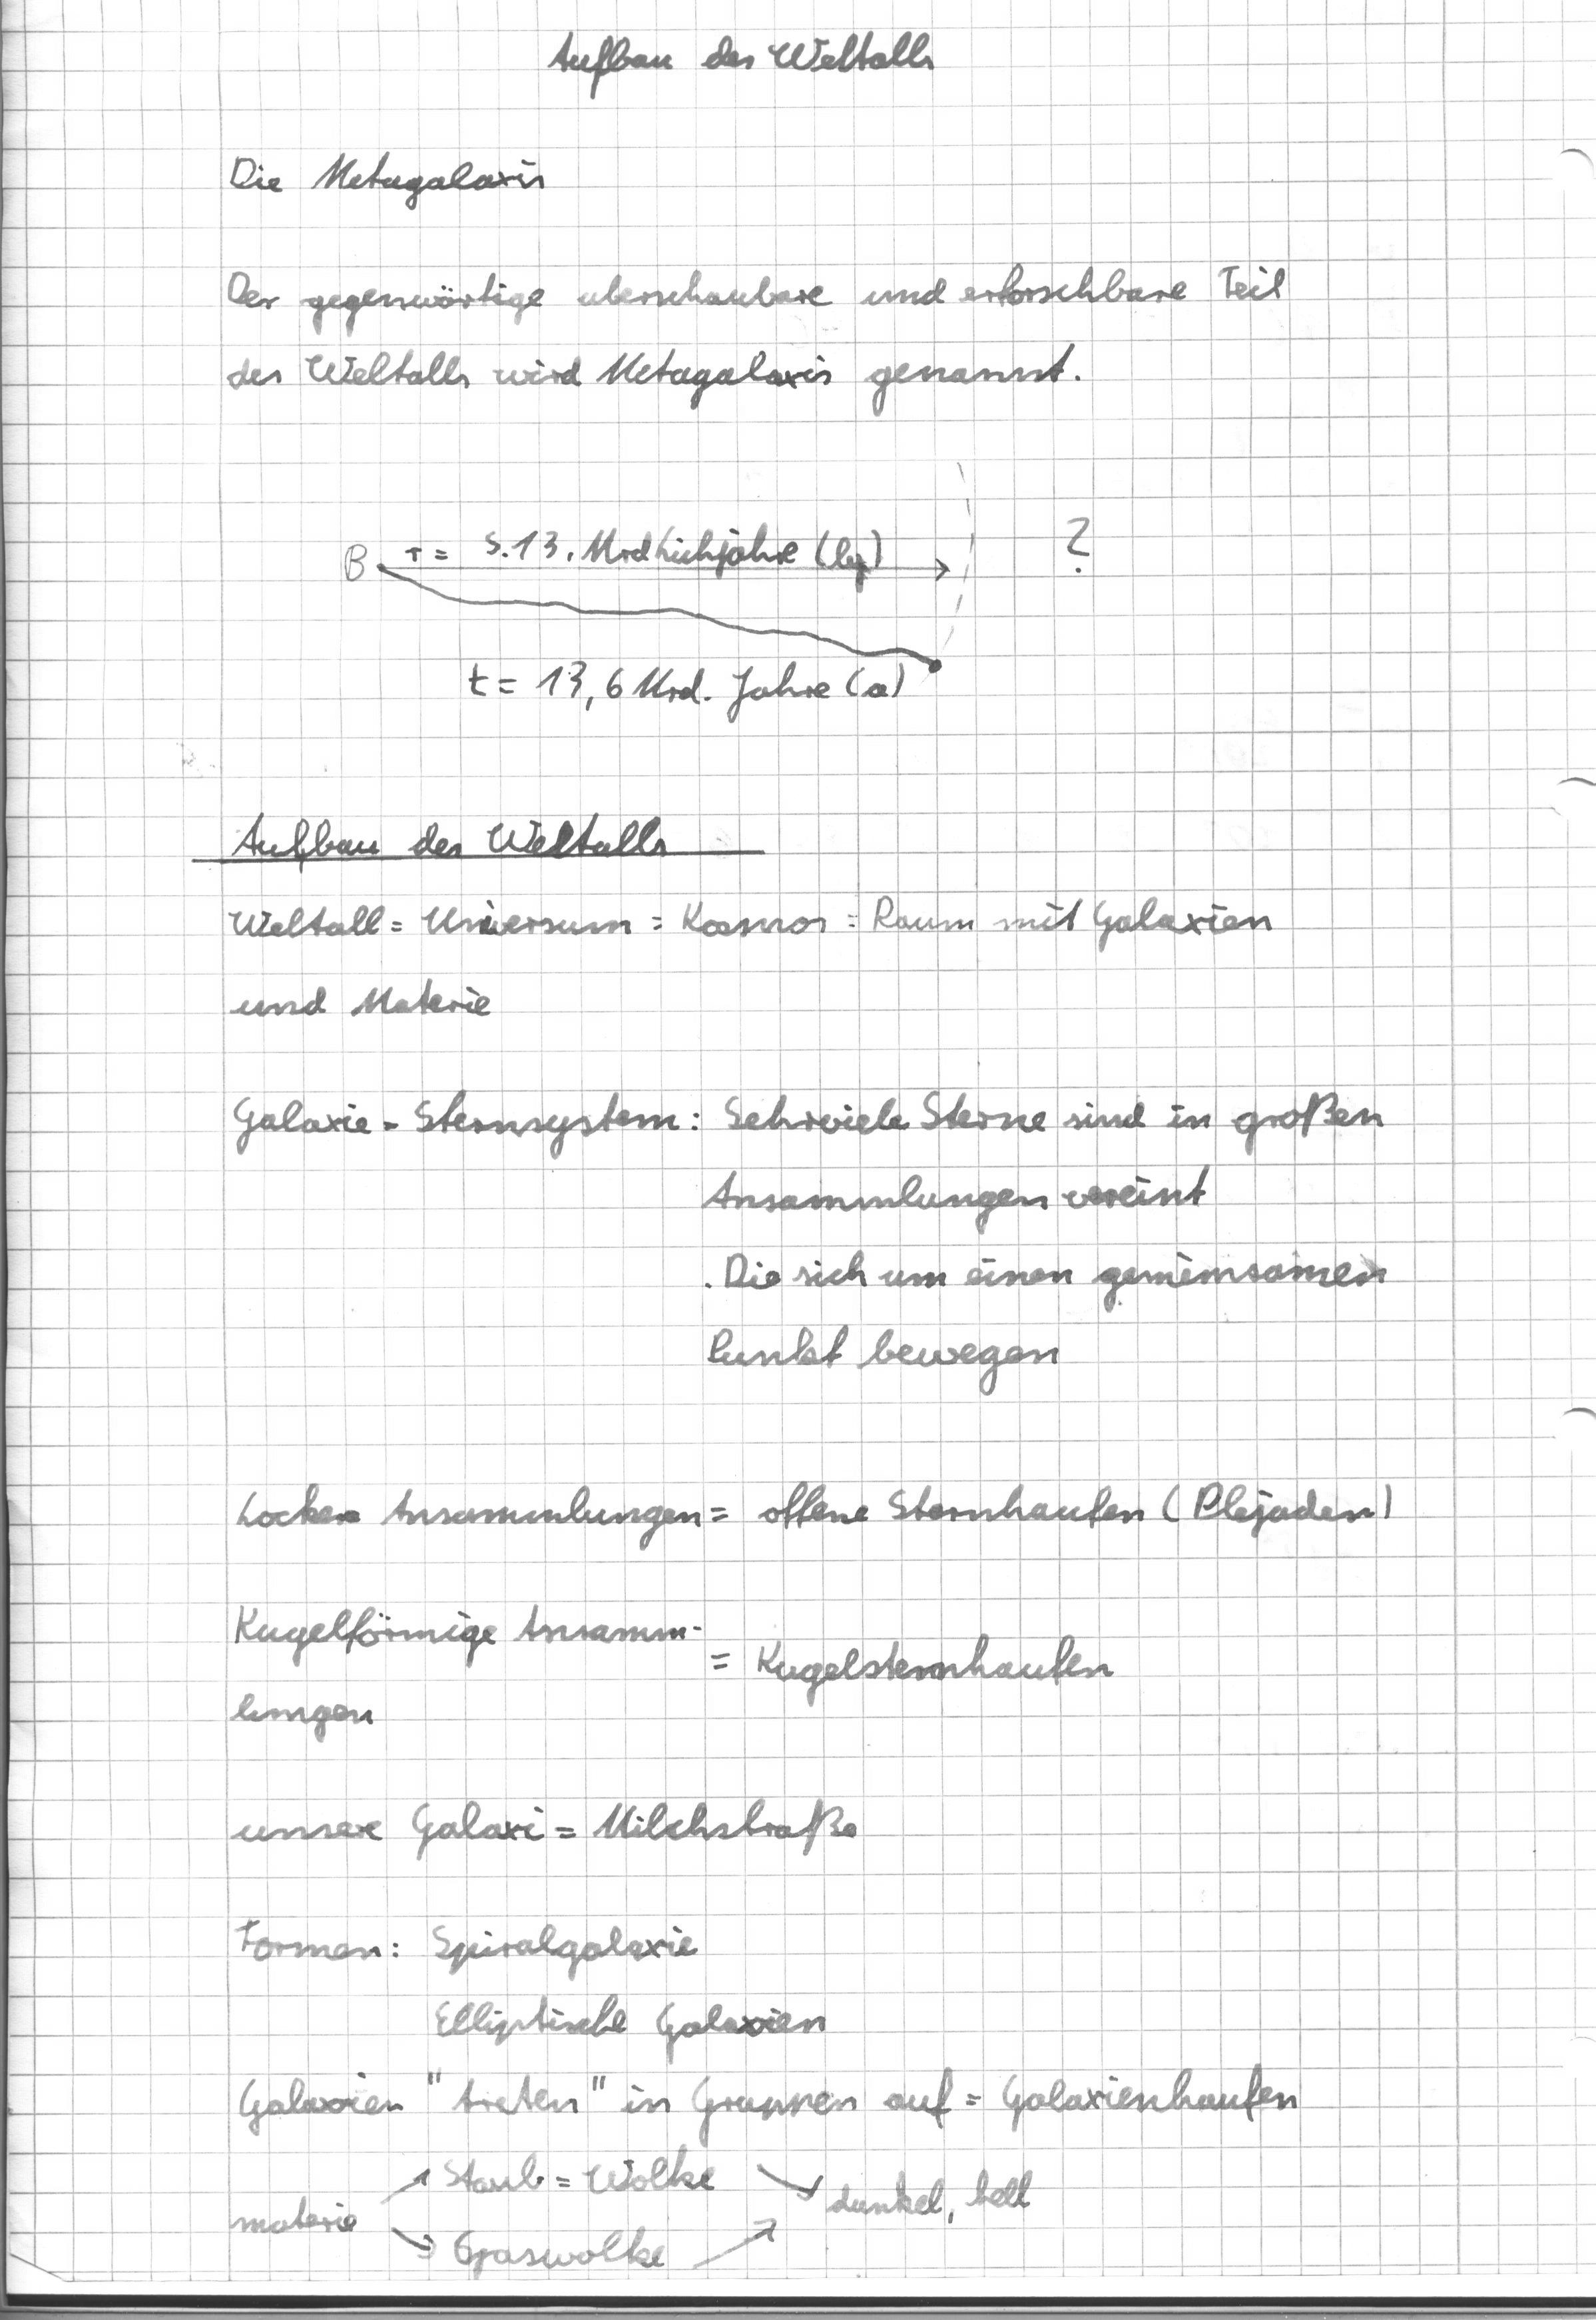 Aufbau des Weltalls
Die Metagalaxis
Der gegenwärtige uberschaubare und erforschbare Teil
des Weltalls wird Metagalaxis genannt.
B r = 5.13. Mrd Lichjahre (lj) ?
t = 13,6 Mrd. Jahre (a)
Aufbau des Weltalls
Weltall = Universum = Kosmos = Raum mit Galaxien
und Materie
Galaxie - Sternsystem: Sehrviele Sterne sind in großen
Ansammlungen vereint
. Die sich um einen gemeinsamen
Punkt bewegen
Lockere Ansammlungen = offene Sternhaufen (Plejaden)
Kugelförmige Ansamm-
= Kugelsternhaufen
lungen
unsere Galaxi = Milchstraße
Formen: Spiralgalaxie
Elliptische Galaxien
Galaxien "treten" in Gruppen auf = Galaxienhaufen
Staub = Wolke
materie dunkel, hell
Gaswolke